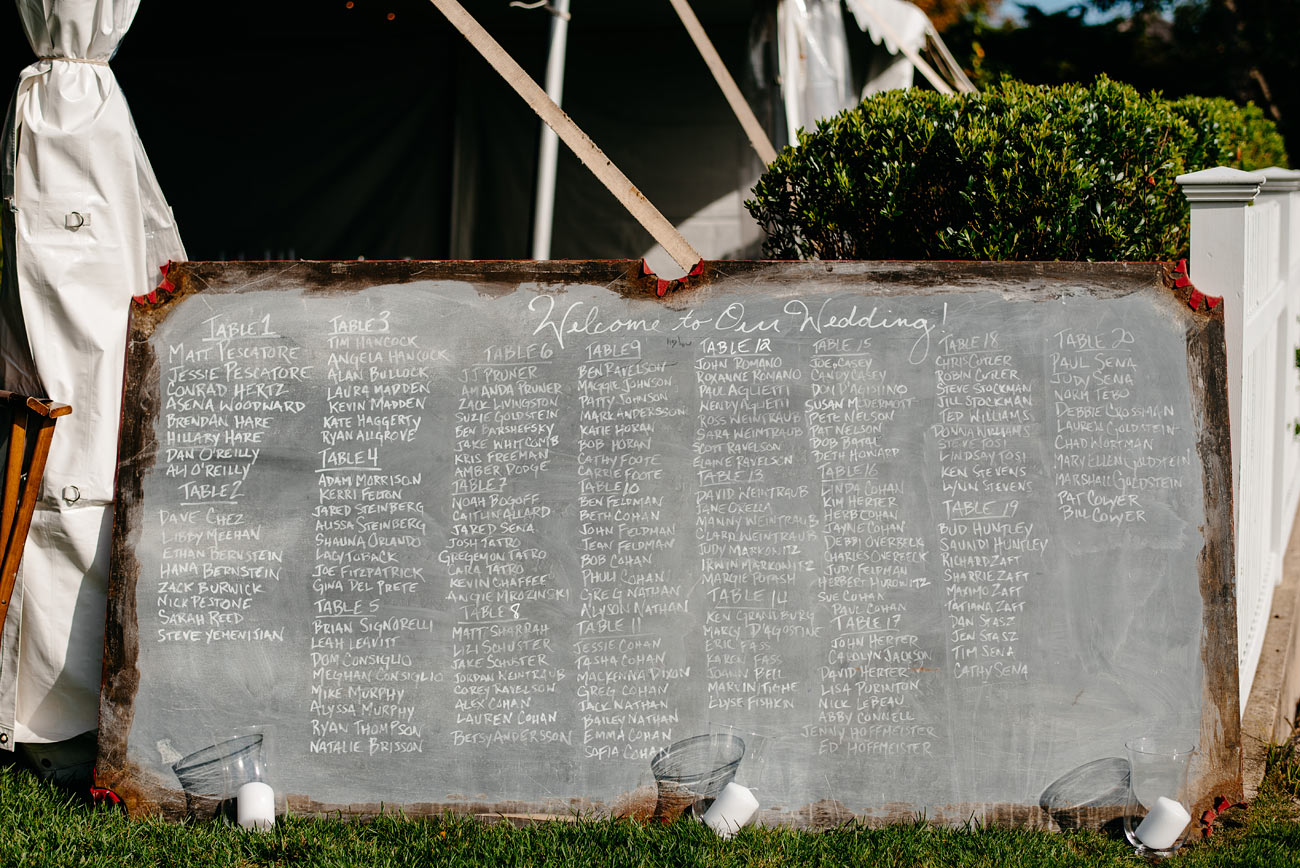 Welcome to Our Wedding!
TABLE 1
MATT PESCATORE
JESSIE PESCATORE
CONRAD HERTZ
ASENA WOODWARD
BRENDAN HARE
HILLARY HARE
DAN O'REILLY
ALI O'REILLY
TABLE 2
DAVE CHEZ
LIBBY MEEHAN
ETHAN BERNSTEIN
HANA BERNSTEIN
ZACK BURWICK
NICK PESTONE
SARAH REED
STEVE YEHENISIAN
TABLE 3
TIM HANCOCK
ANGELA HANCOCK
ALAN BULLOCK
LAURA MADDEN
KEVIN MADDEN
KATE HAGGERTY
RYAN ALLGROVE
TABLE 4
ADAM MORRISON
KERRI FELTON
JARED STEINBERG
ALISSA STEINBERG
SHAUNA ORLANDO
LACY TUBACK
JOE FITZPATRICK
GINA DEL PRETE
TABLE 5
BRIAN SIGNORELLI
LEAH LEAVITT
DOM CONSIGLIO
MEGHAN CONSIGLIO
MIKE MURPHY
ALYSSA MURPHY
RYAN THOMPSON
NATALIE BRISSON
TABLE 6
JJ PRUNER
AMANDA PRUNER
ZACK LIVINGSTON
SUZIE GOLDSTEIN
BEN BARSHEFSKY
JAKE WHITCOMB
KRIS FREEMAN
AMBER DODGE
TABLE 7
NOAH BOGOFF
CAITLIN ALLARD
JARED SENA
JOSH TATRO
GREGEMON TATRO
CARA TATRO
KEVIN CHAFFEE
ANGIE MROZINSKI
TABLE 8
MATT SHARRAH
LIZI SCHUSTER
JAKE SCHUSTER
JORDAN WEINTRUB
COREY RAVELSON
ALEX COHAN
LAUREN COHAN
BETSY ANDERSSON
TABLE 9
BEN RAVELSON
MAGGIE JOHNSON
PATTY JOHNSON
MARK ANDERSSON
KATIE HORAN
BOB HORAN
CATHY FOOTE
CARLIE FOOTE
TABLE 10
BEN FELDMAN
BETH COHAN
JOHN FELDMAN
JEAN FELDMAN
BOB COHAN
PHULI COHAN
GREG NATHAN
ALYSON NATHAN
TABLE 11
JESSIE COHAN
TASHA COHAN
MACKENNA DIXON
GREG COHAN
JACK NATHAN
BAILEY NATHAN
EMMA COHAN
SOFIA COHAN
TABLE 12
JOHN ROMANO
ROXANNE ROMANO
PAUL AGLIETTI
WENDY AGLIETTI
ROSS WEINTRAUB
SARA WEINTRAUB
SCOTT RAVELSON
ELAINE RAVELSON
TABLE 13
DAVID WEINTRAUB
JANE OKELLA
MANNY WEINTRAUB
CLARA WEINTRAUB
JUDY MARKOWITZ
IRWIN MARKOWITZ
MARGIE POTASH
TABLE 14
KEN GRANDBURG
MARCY D'AGOSTINE
ERIC FASS
KAREN FASS
JOANN BELL
MARVIN TIGHE
ELYSE FISHKIN
TABLE 15
JOE CASEY
CANDY CASEY
DON D'AGISTINO
SUSAN MCDERMOTT
PETE NELSON
PAT NELSON
BOB BATAL
BETH HOWARD
TABLE 16
LINDA COHAN
KIM HERTER
HERB COHAN
JAYNE COHAN
DEBBI OVERBECK
CHARLES OVERBECK
JUDY FELDMAN
HERBERT HUROWITZ
SUE COHAN
PAUL COHAN
TABLE 17
JOHN HERTER
CAROLYN JACKSON
DAVID HERTER
LISA PURINTON
NICK LEBEAU
ABBY CONNELL
JENNY HOFFMEISTER
ED HOFFMEISTER
TABLE 18
CHRIS CUTLER
ROBIN CUTLER
STEVE STOCKMAN
JILL STOCKMAN
TED WILLIAMS
DONNA WILLIAMS
STEVE TOSI
LINDSAY TOSI
KEN STEVENS
LYNN STEVENS
TABLE 19
BUD HUNTLEY
SAUNDI HUNTLEY
RICHARD ZAFT
SHARRIE ZAFT
MAXIMO ZAFT
TATIANA ZAFT
DAN STASZ
JEN STASZ
TIM SENA
CATHY SENA
TABLE 20
PAUL SENA
JUDY SENA
NORM TEBO
DEBBIE CROSSMAN
LAUREN GOLDSTEIN
CHAD WORTMAN
MARY ELLEN GOLDSTEIN
MARSHALL GOLDSTEIN
PAT COLWER
BILL COWER